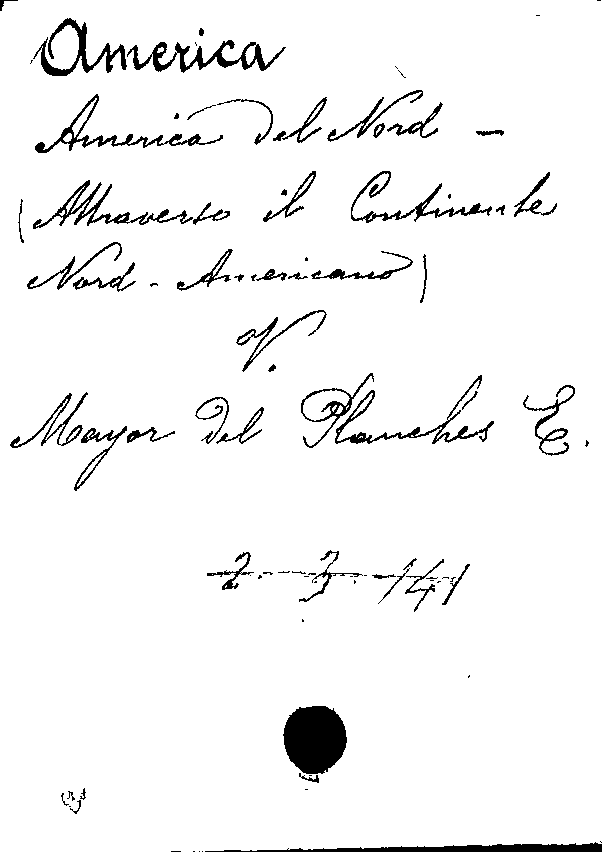 America
America del Nord –
(Attraverso il Continente
Nord-Americano)
V.
Mayor del Planches E.
2. 3. 141